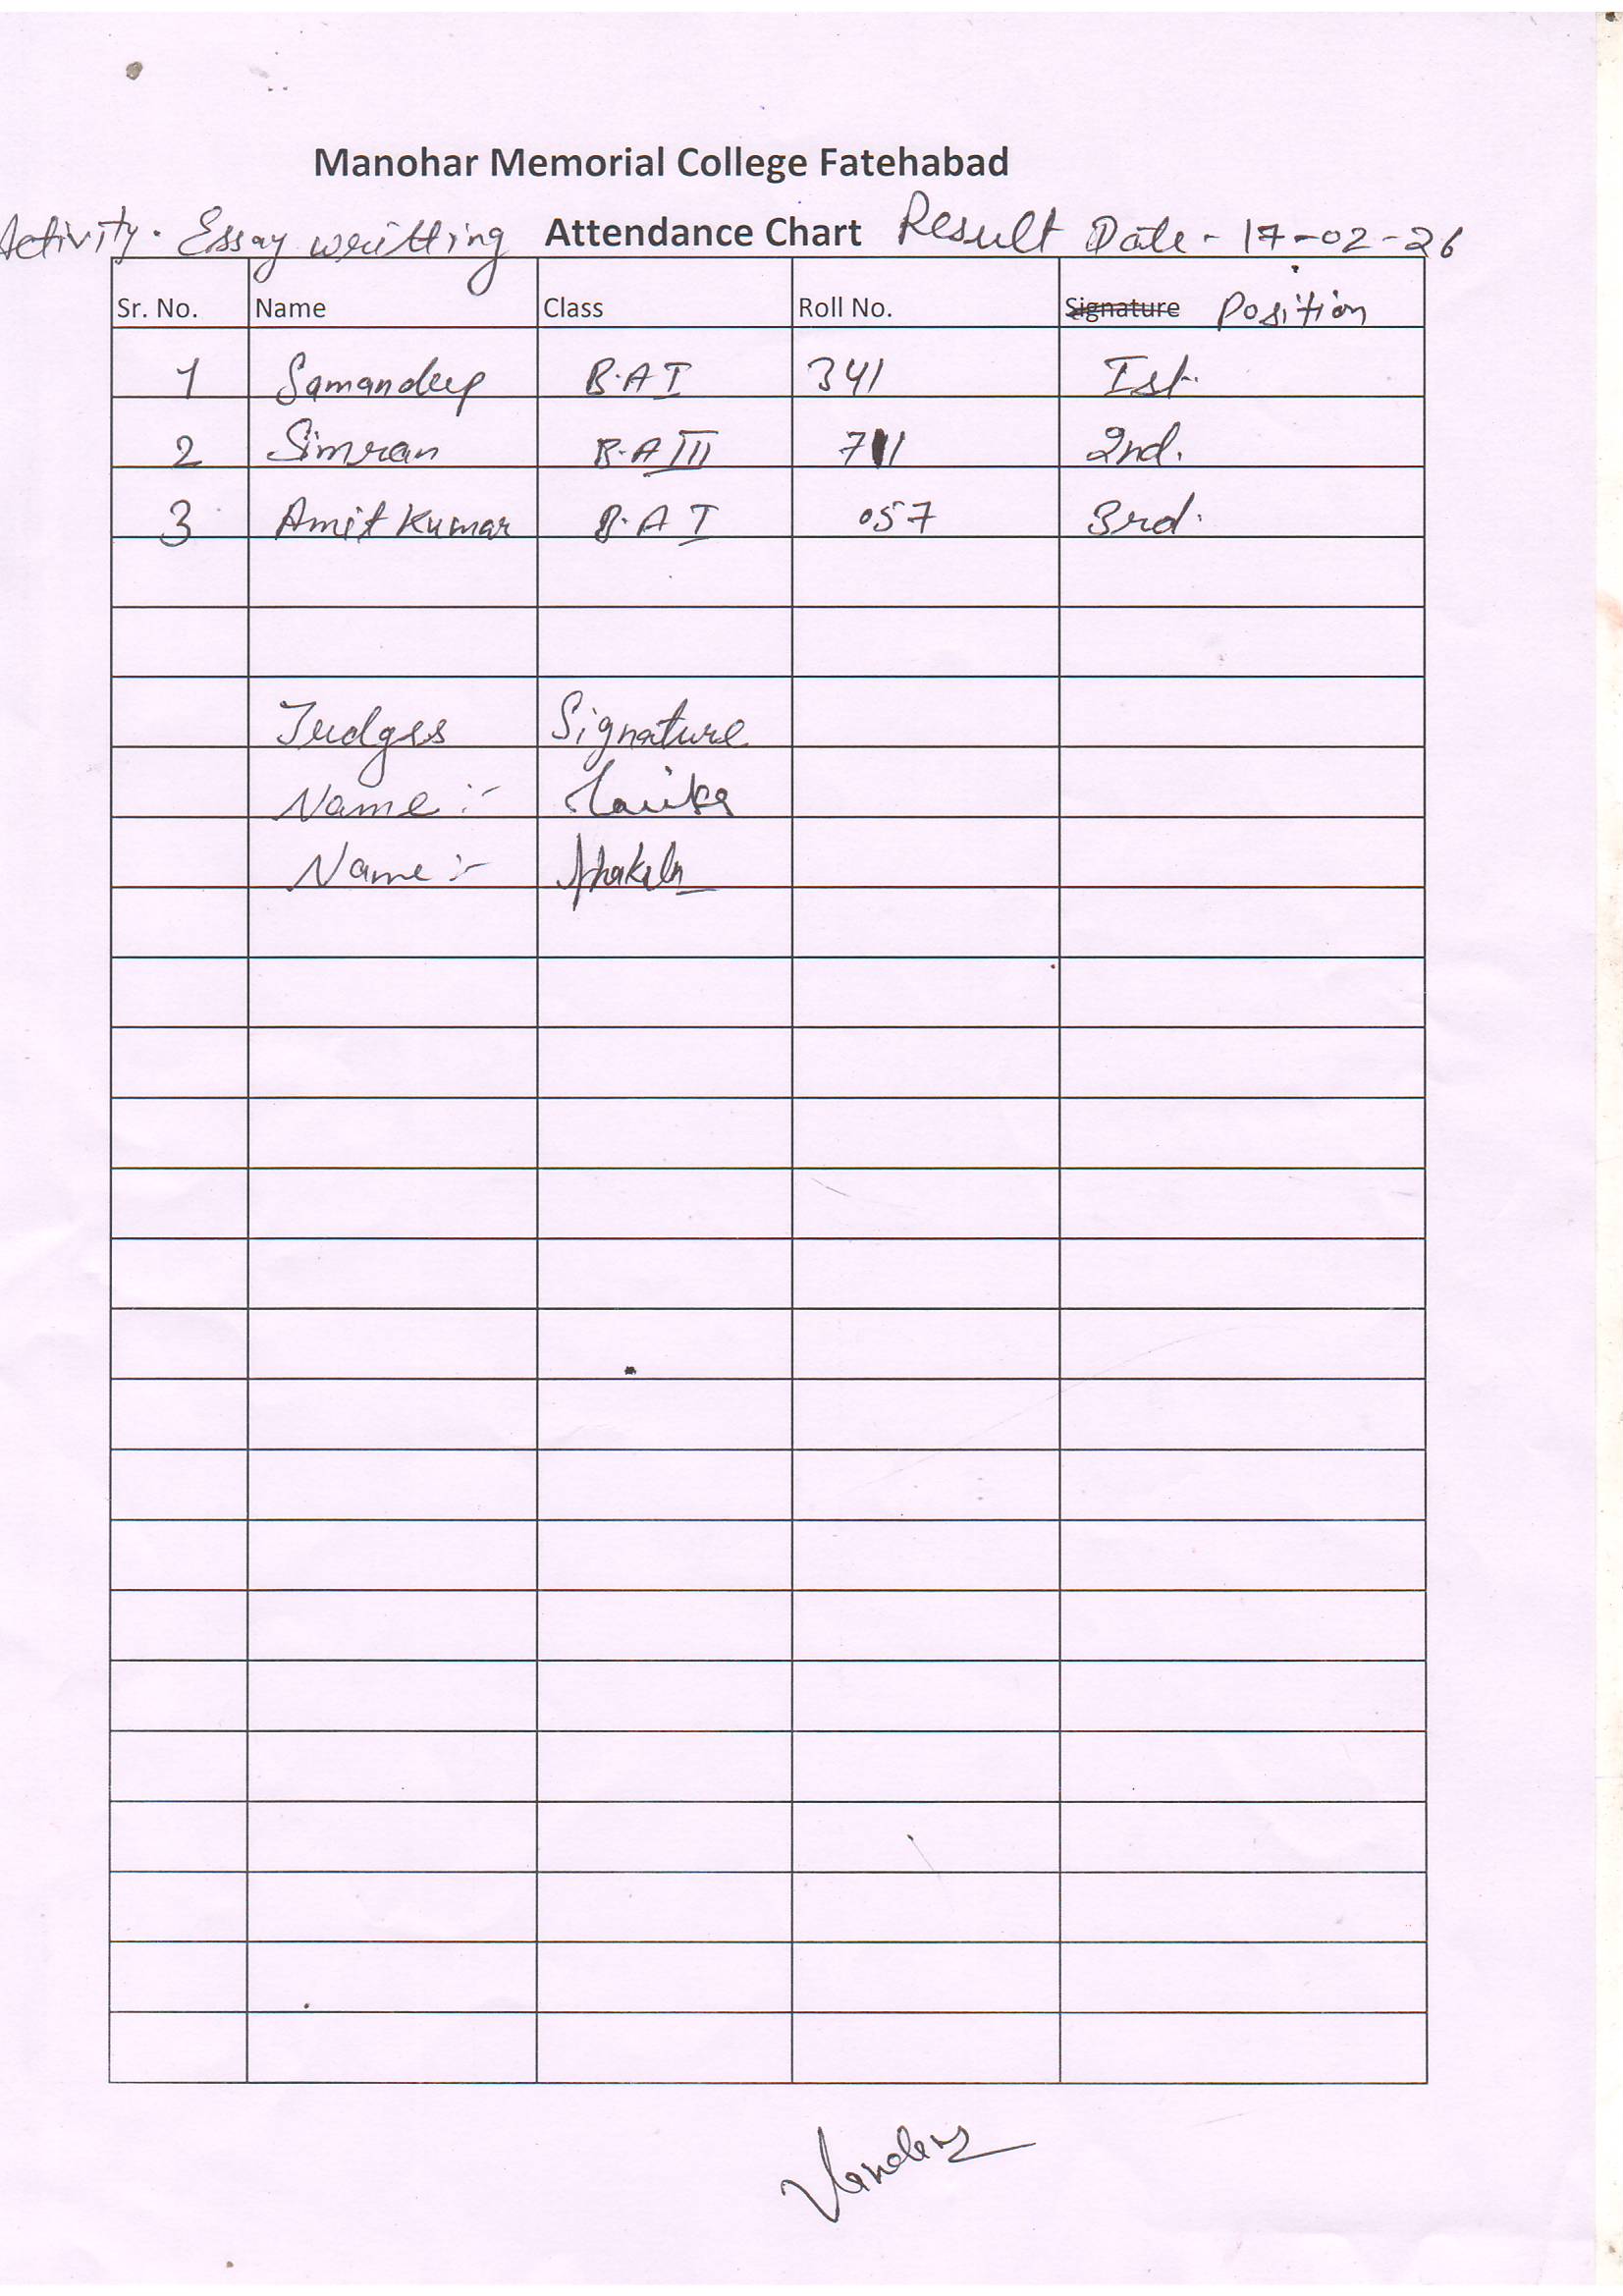 Manohar Memorial College Fatehabad
Activity. Essay writting Attendance Chart Result Date - 17-02-26
Sr. No. Name Class Roll No. Signature Position
1 Samandeep B.A I 341 Ist.
2 Simran B.A III 711 2nd.
3 Amit Kumar B.A I 057 3rd.
Judges Signature
Name :-
Name :-